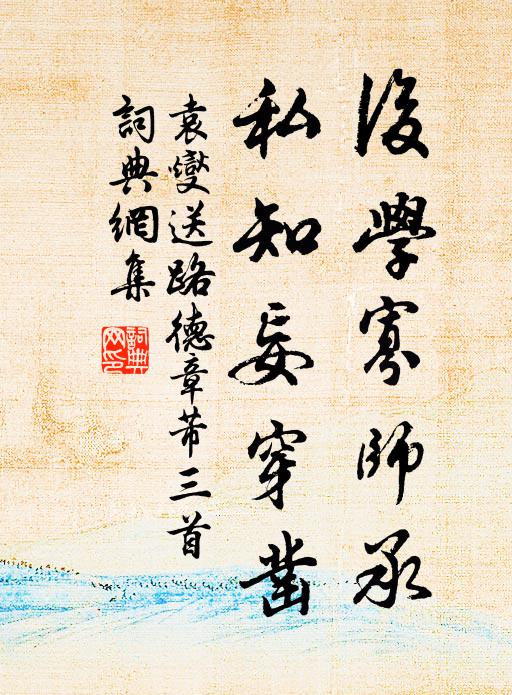 後學寡師承
私知妄穿鑿
袁燮送路德章芾三首
詞典網集
詞典網印